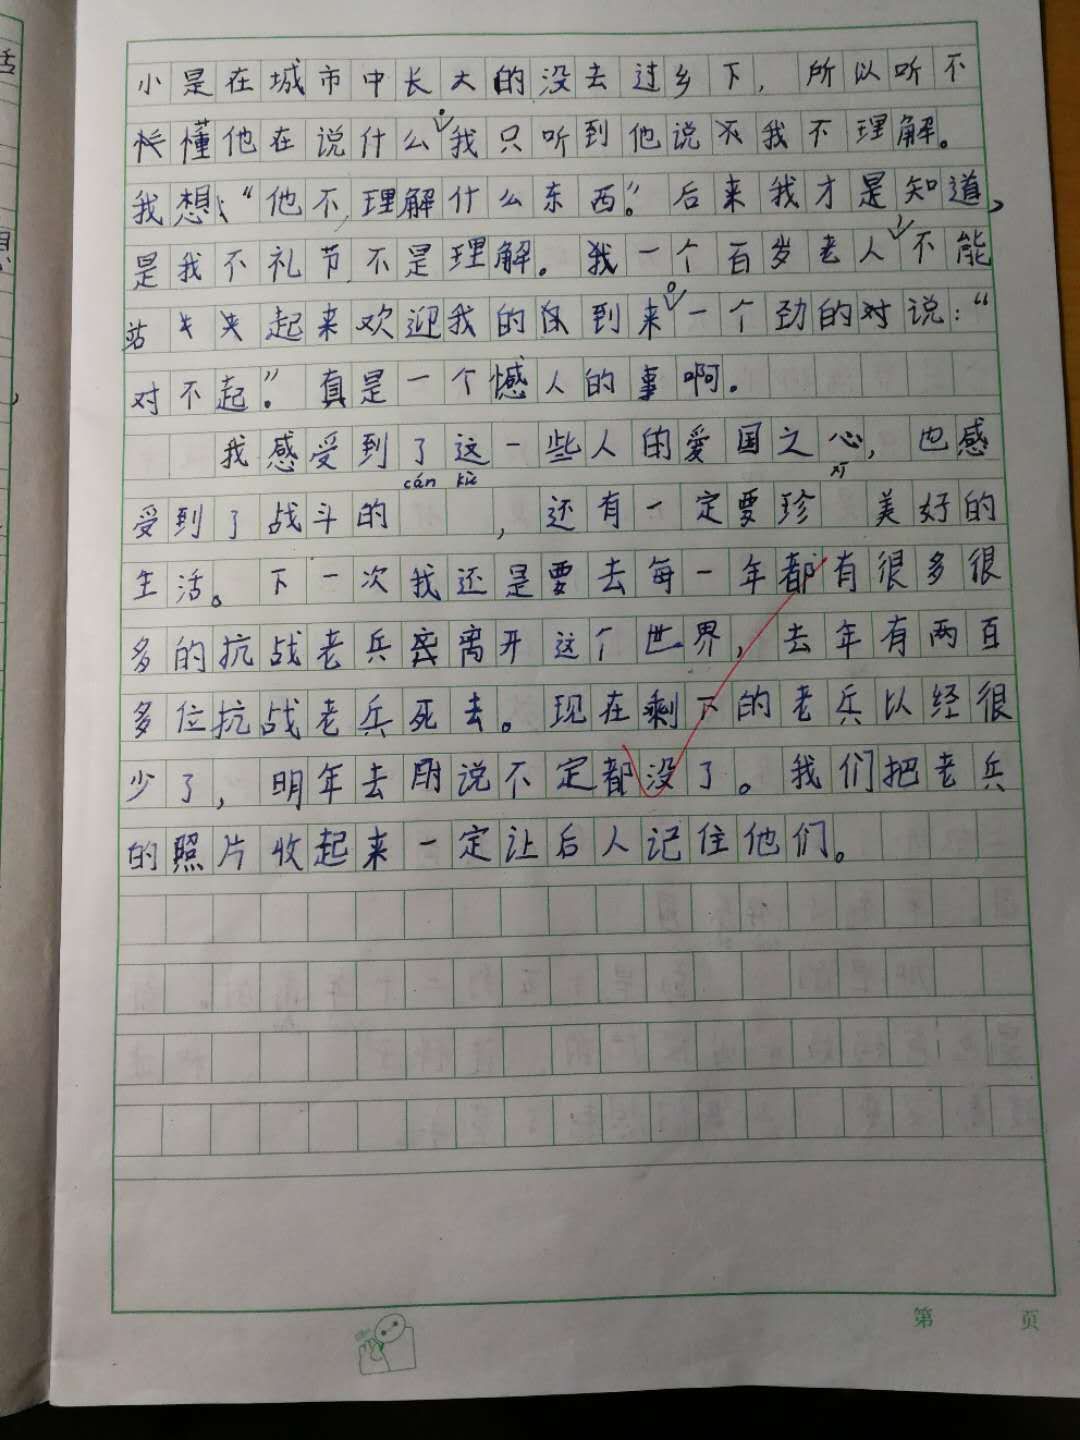 小是在城市中长大的没去过乡下，所以听不
懂他在说什么。我只听到他说不我不理解。
我想，“他不理解什么东西”。后来我才是知道，
是我不礼节不是理解。我一个百岁老人，不能
站起来欢迎我的到来。一个劲的对说：“
对不起”。真是一个憾人的事啊。
我感受到了这一些人的爱国之心，也感
cán kù
受到了战斗的，还有一定要珍 美好的
生活。下一次我还是要去每一年都有很多很
多的抗战老兵离开这个世界，去年有两百
多位抗战老兵死去。现在剩下的老兵以经很
少了，明年去说不定都没了。我们把老兵
的照片收起来一定让后人记住他们。
第 页